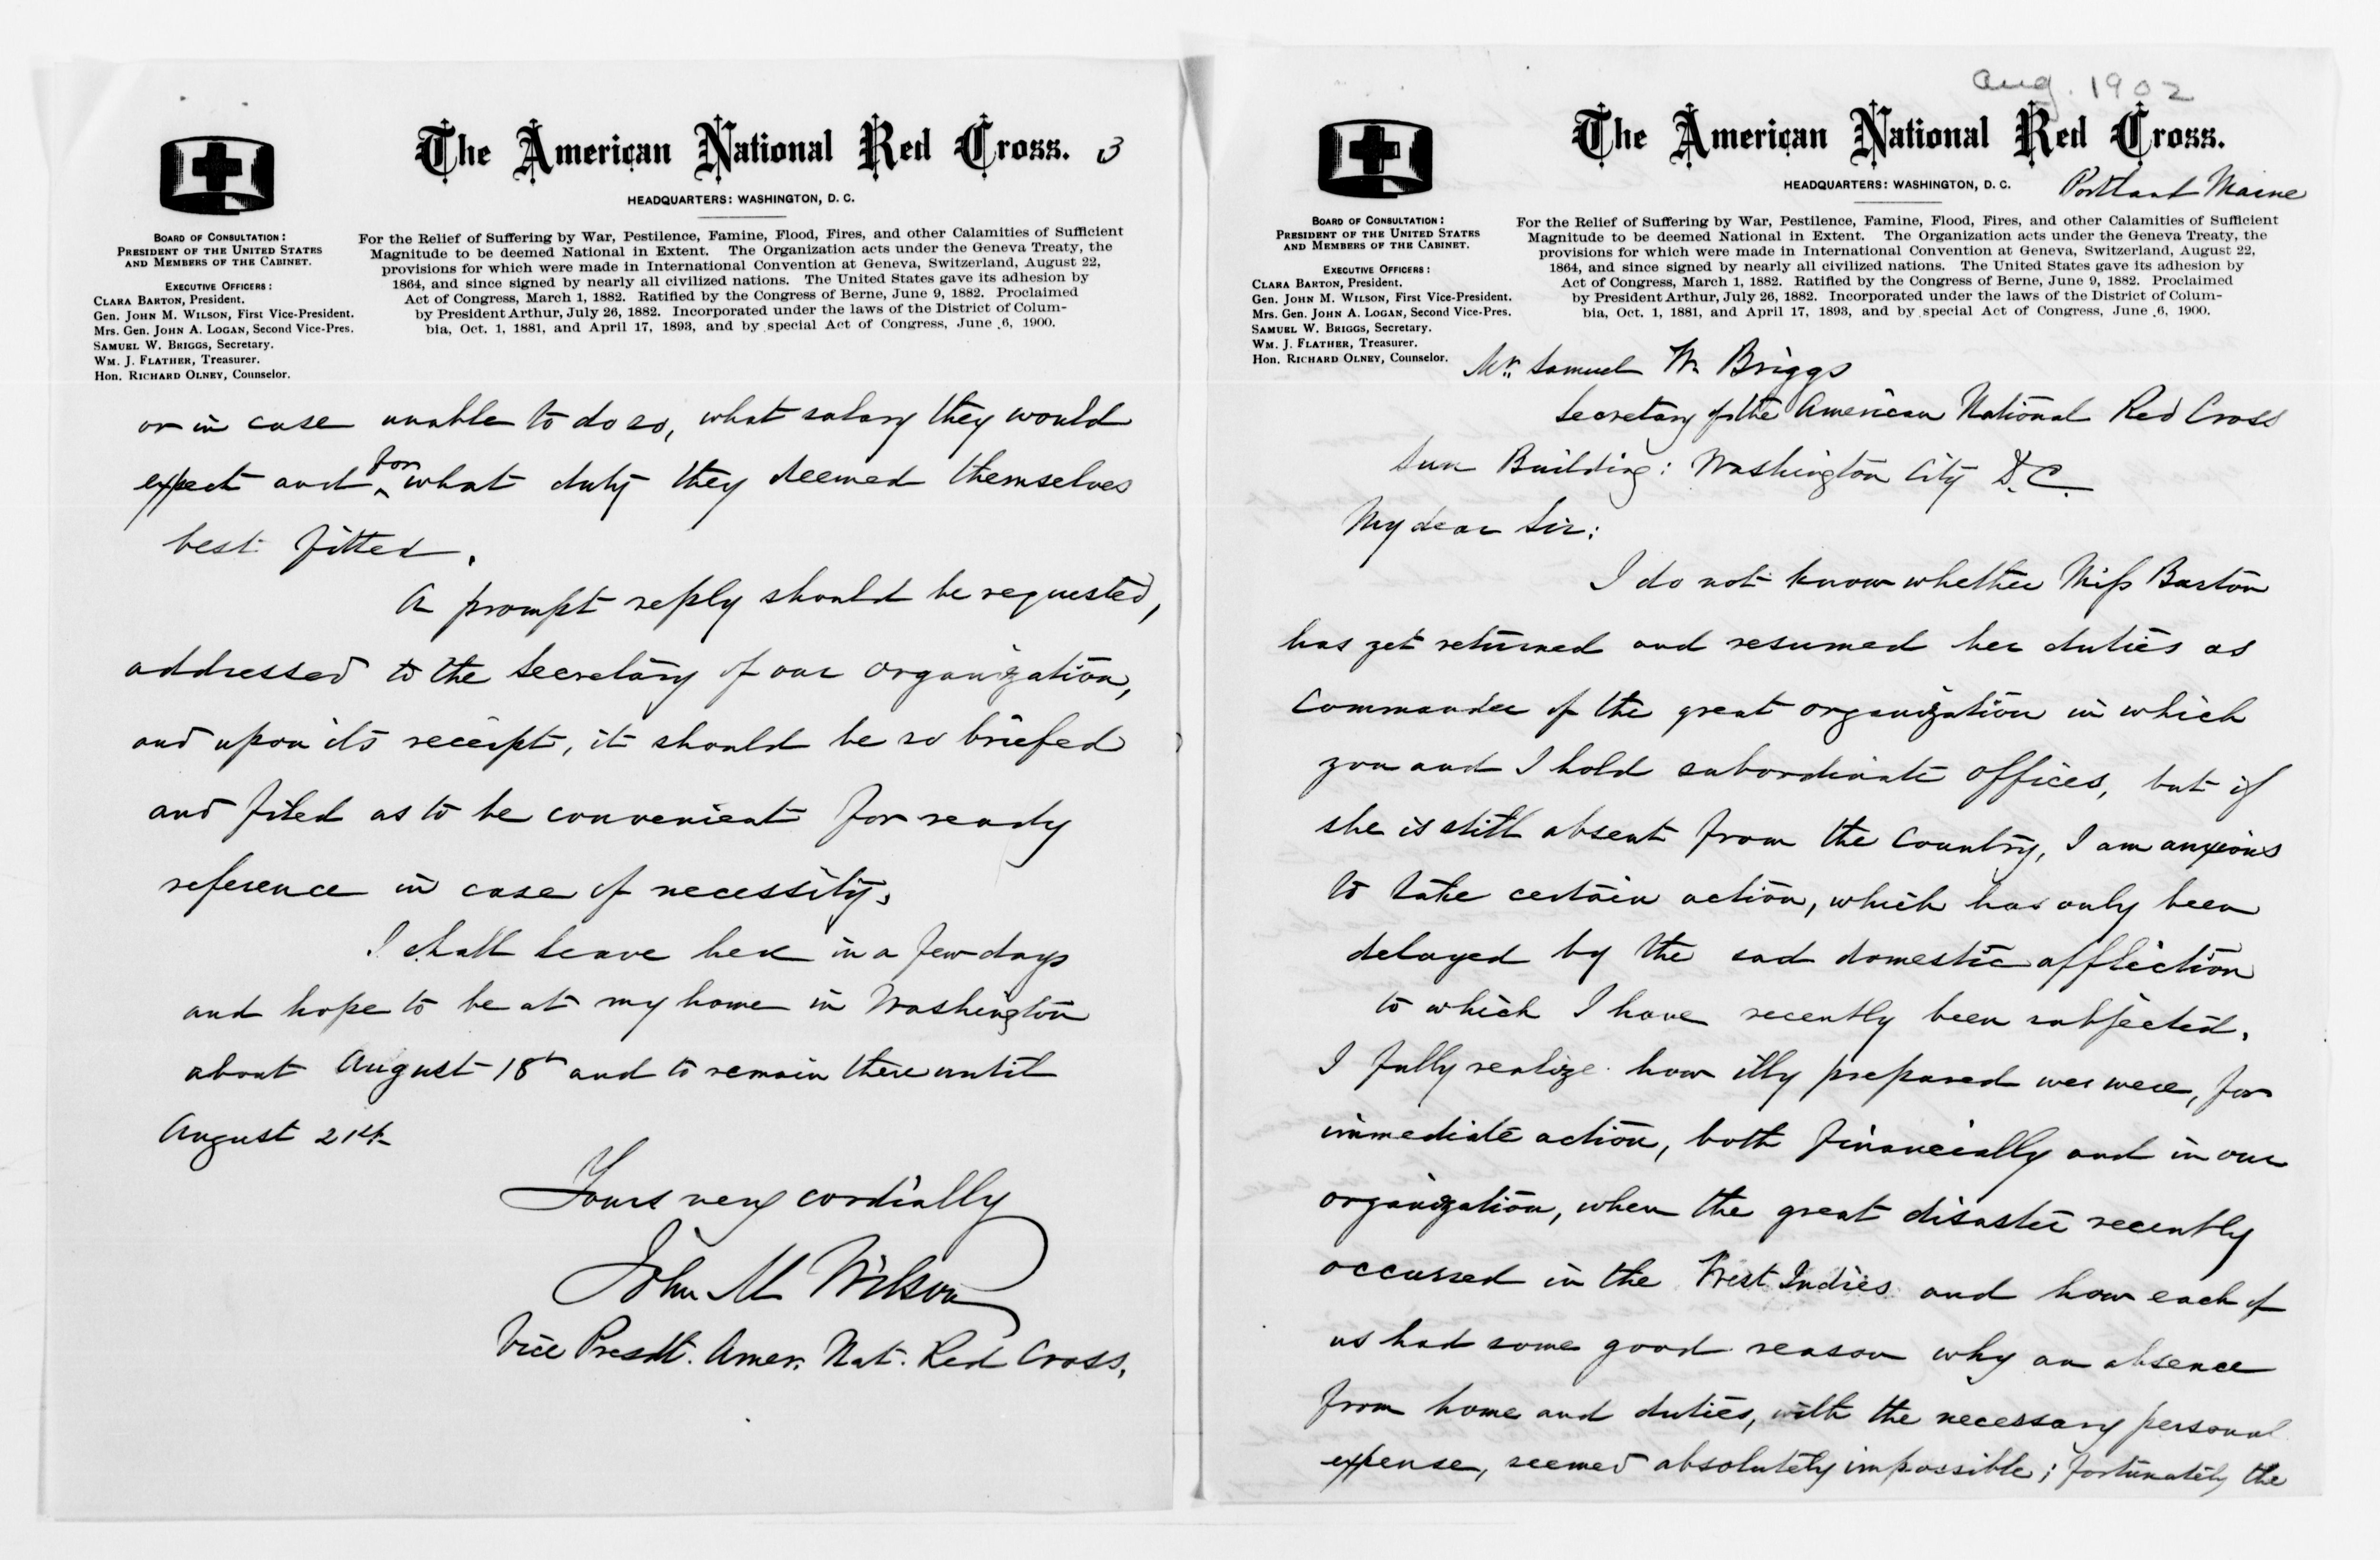 The American National Red Cross. 3
HEADQUARTERS: WASHINGTON, D. C.
BOARD OF CONSULTATION:
PRESIDENT OF THE UNITED STATES
AND MEMBERS OF THE CABINET.
EXECUTIVE OFFICERS:
CLARA BARTON, President.
Gen. JOHN M. WILSON, First Vice-President.
Mrs. Gen. JOHN A. LOGAN, Second Vice-Pres.
SAMUEL W. BRIGGS, Secretary.
WM. J. FLATHER, Treasurer.
Hon. RICHARD OLNEY, Counselor.
For the Relief of Suffering by War, Pestilence, Famine, Flood, Fires, and other Calamities of Sufficient
Magnitude to be deemed National in Extent. The Organization acts under the Geneva Treaty, the
provisions for which were made in International Convention at Geneva, Switzerland, August 22,
1864, and since signed by nearly all civilized nations. The United States gave its adhesion by
Act of Congress, March 1, 1882. Ratified by the Congress of Berne, June 9, 1882. Proclaimed
by President Arthur, July 26, 1882. Incorporated under the laws of the District of Colum-
bia, Oct. 1, 1881, and April 17, 1893, and by special Act of Congress, June 6, 1900.
or in case unable to do so, what salary they would
expect and for what duty they deemed themselves
best fitted.
A prompt reply should be requested,
addressed to the Secretary of our organization,
and upon its receipt, it should be so briefed
and filed as to be convenient for ready
reference in case of necessity.
I shall leave here in a few days
and hope to be at my home in Washington
about August 18th and to remain there until
August 21st
Yours very cordially
John M Wilson
Vice Presdt. Amer. Nat. Red Cross.
Aug. 1902
The American National Red Cross.
HEADQUARTERS: WASHINGTON, D. C.
Portland Maine
BOARD OF CONSULTATION:
PRESIDENT OF THE UNITED STATES
AND MEMBERS OF THE CABINET.
EXECUTIVE OFFICERS:
CLARA BARTON, President.
Gen. JOHN M. WILSON, First Vice-President.
Mrs. Gen. JOHN A. LOGAN, Second Vice-Pres.
SAMUEL W. BRIGGS, Secretary.
WM. J. FLATHER, Treasurer.
Hon. RICHARD OLNEY, Counselor.
For the Relief of Suffering by War, Pestilence, Famine, Flood, Fires, and other Calamities of Sufficient
Magnitude to be deemed National in Extent. The Organization acts under the Geneva Treaty, the
provisions for which were made in International Convention at Geneva, Switzerland, August 22,
1864, and since signed by nearly all civilized nations. The United States gave its adhesion by
Act of Congress, March 1, 1882. Ratified by the Congress of Berne, June 9, 1882. Proclaimed
by President Arthur, July 26, 1882. Incorporated under the laws of the District of Colum-
bia, Oct. 1, 1881, and April 17, 1893, and by special Act of Congress, June 6, 1900.
Mr. Samuel W. Briggs
Secretary of the American National Red Cross
Sun Building: Washington City D.C.
My dear Sir:
I do not know whether Miss Barton
has yet returned and resumed her duties as
Commander of the great organization in which
you and I hold subordinate offices, but if
she is still absent from the Country, I am anxious
to take certain action, which has only been
delayed by the sad domestic affliction
to which I have recently been subjected.
I fully realize how illy prepared we were, for
immediate action, both financially and in our
organization, when the great disaster recently
occurred in the West Indies and how each of
us had some good reason why an absence
from home and duties, with the necessary personal
expense, seemed absolutely impossible; fortunately the